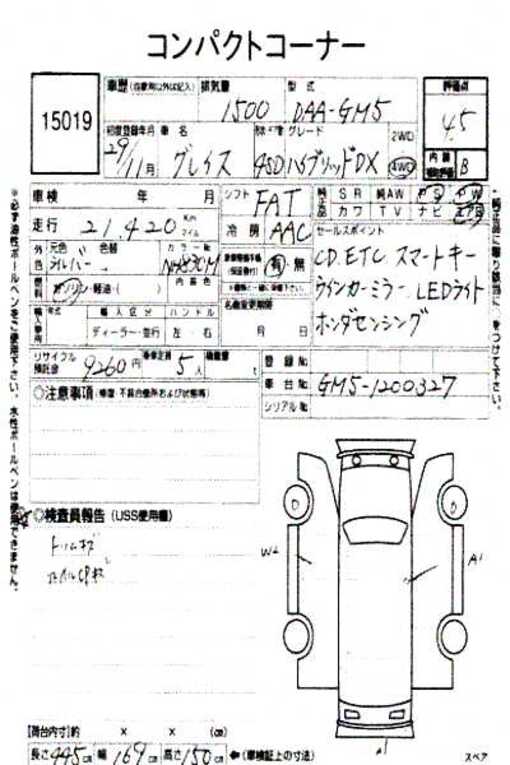 コンパクトコーナー
15019
車歴 (自家用以外は記入) 排気量 型式
1500 DAA-GM5
評価点
4.5
初度登録年月 車名 グレード 2WD
29/11月 グレイス 4SD ハイブリッドDX 4WD
内装 B
車検 年 月 シフト FAT
純正品 SR 純AW PS PW
カワ TV ナビ エアB
走行 21,420 Km マイル 冷房 AAC
セールスポイント
外色 元色 色替 カラーNo.
シルバー NH830M
有・無
CD.ETC スマートキー
ウインカーミラー LEDライト
ホンダセンシング
燃料 ガソリン・軽油・( ) 内装色
名義変更期限
輸入車 輸入区分 ハンドル
ディーラー・並行 左・右 月 日
リサイクル預託金 9260円 乗車定員 5人 積載量 t
登録No.
車台No. GM5-1200327
シリアルNo.
◎注意事項 (修復・不具合箇所および状態等)
◎検査員報告 (USS使用欄)
トリムキズ
W2
A1
A1
【荷台内寸】約 × × (cm)
長さ 445cm 幅 169cm 高さ 150cm ←(車検証上の寸法)
スペア
※必ず油性ボールペンをご使用下さい。水性ボールペンは使用できません。